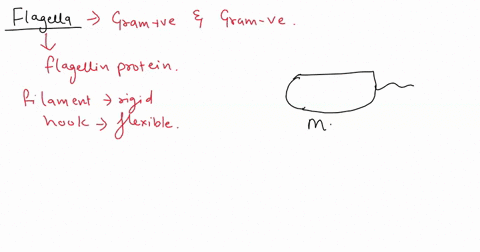 Flagella → Gram+ve & Gram-ve.
↓
flagellin protein.
filament → rigid
hook → flexible.
M.